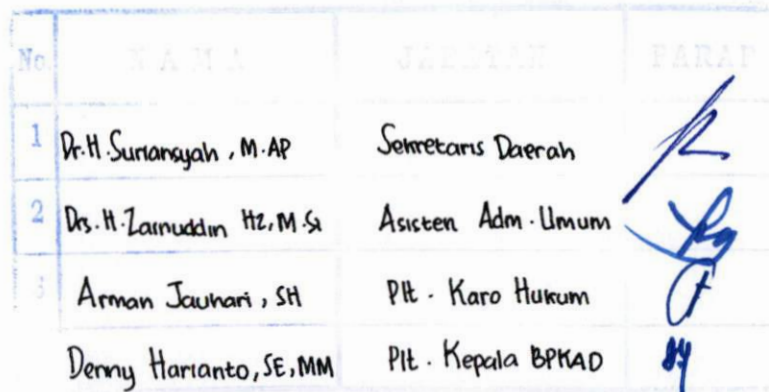 No. NAMA JABATAN PARAF
1 Dr. H. Suriansyah, M.AP Sekretaris Daerah
2 Drs. H. Zainuddin Hz, M.Si Asisten Adm. Umum
3 Arman Jauhari, SH Plt. Karo Hukum
Denny Harianto, SE, MM Plt. Kepala BPKAD